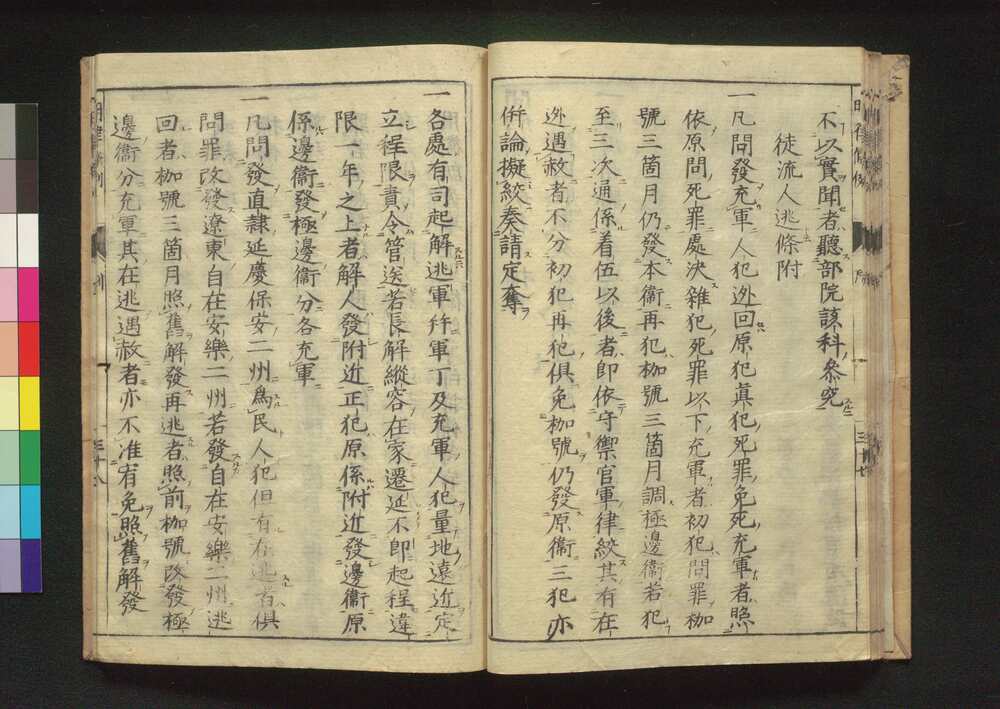 不以實聞者聽部院該科參究
徒流人逃條附
一凡問發充軍人犯逃回原犯眞犯死罪免死充軍者照
依原問死罪處決雜犯死罪以下充軍者初犯問罪枷
號三箇月仍發本衞再犯枷號三箇月調極邊衞若犯
至三次通係着伍以後者即依守禦官軍律絞其有在
逃遇赦者不分初犯再犯俱免枷號仍發原衞三犯亦
併論擬絞奏請定奪
一各處有司起解逃軍幷軍丁及充軍人犯量地遠近定
立程限責令管送若長解縱容在家遷延不即起程違
限一年之上者解人發附近正犯原係附近發邊衞原
係邊衞發極邊衞分各充軍
一凡問發直隷延慶保安二州爲民人犯但有在逃者俱
問罪改發遼東自在安樂二州若發自在安樂二州逃
回者枷號三箇月照舊解發再逃者照前枷號改發極
邊衞分充軍其在逃遇赦者亦不准宥免照舊解發